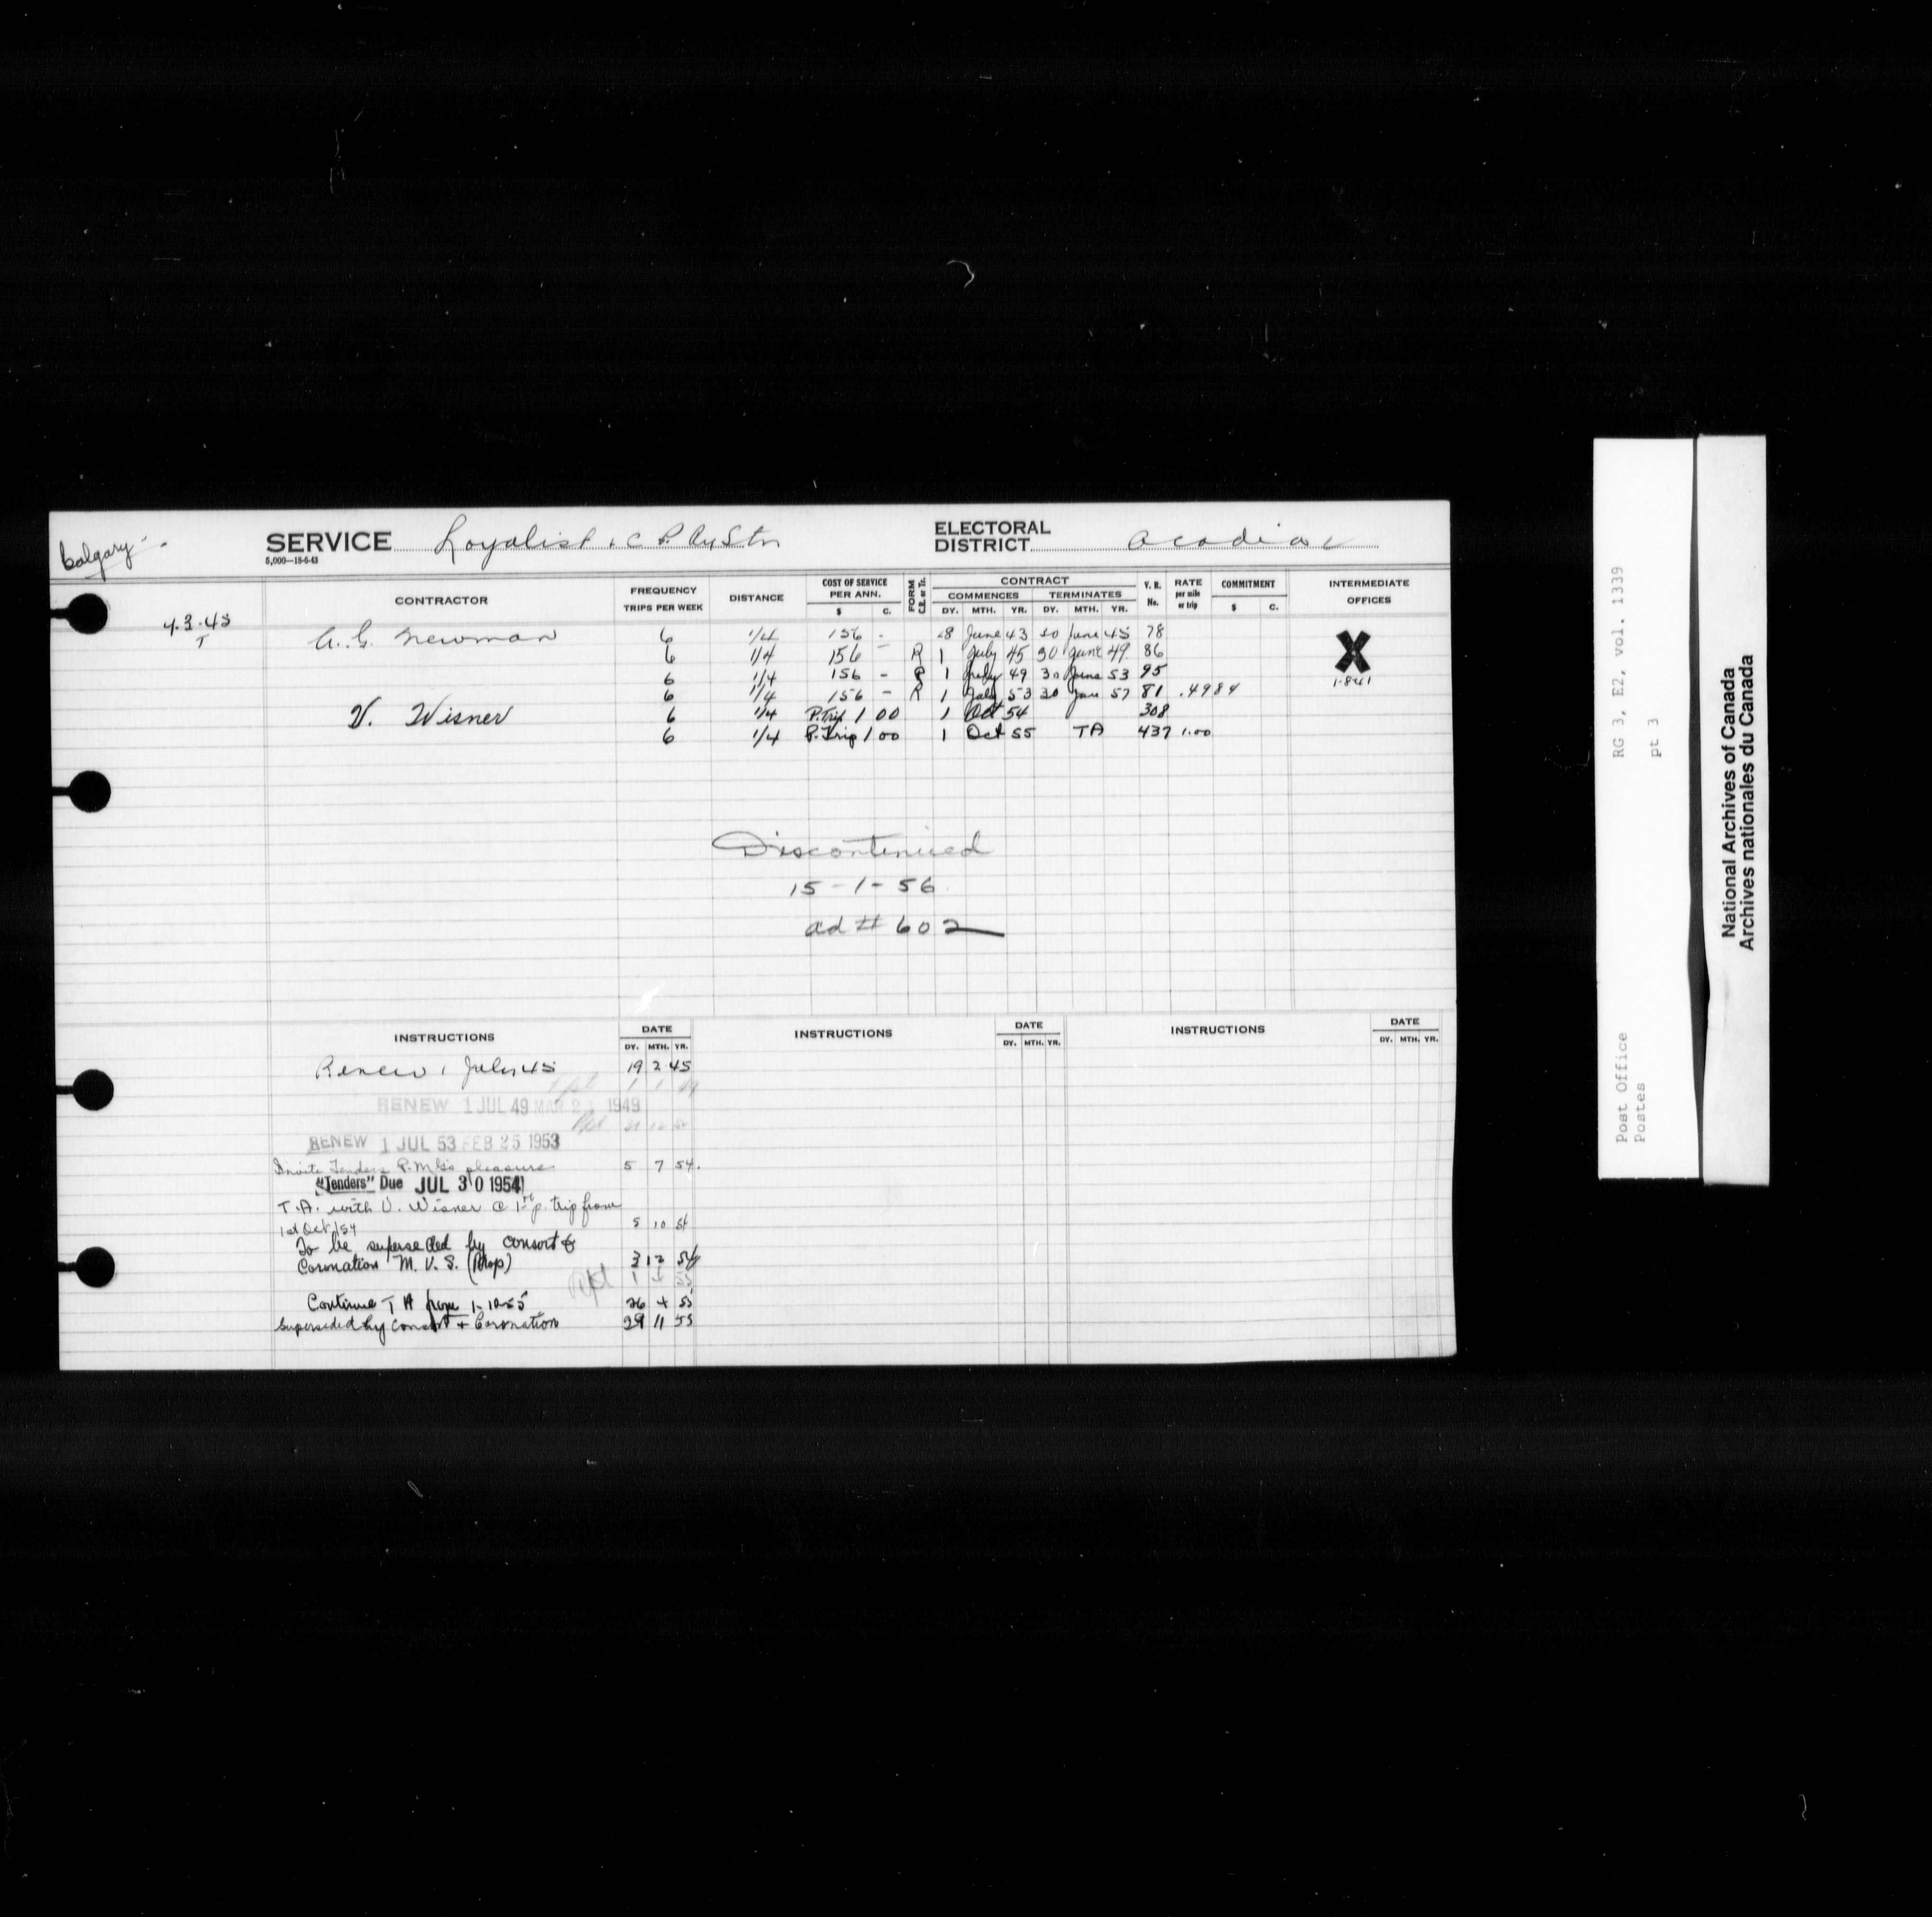 Calgary
SERVICE Loyalist & C.P. Ry Stn ELECTORAL DISTRICT Acadia
5,000—18-6-43
CONTRACTOR FREQUENCY TRIPS PER WEEK DISTANCE COST OF SERVICE PER ANN. $ C. FORM C.R. or Tr. CONTRACT COMMENCES DY. MTH. YR. TERMINATES DY. MTH. YR. V. R. No. RATE per mile or trip COMMITMENT $ C. INTERMEDIATE OFFICES
4.3.43
T
A. G. Newman 6 1/4 156 - 28 June 43 30 June 45 78 X
6 1/4 156 - R 1 July 45 30 June 49 86
6 1/4 156 - R 1 July 49 30 June 53 95 1-8-41
6 1/4 156 - R 1 July 53 30 June 57 81 .4984
V. Wisner 6 1/4 P. Trip 1 00 1 Oct 54 308
6 1/4 P. Trip 1 00 1 Oct 55 TA 437 1.00
Discontinued
15-1-56
ad # 602
INSTRUCTIONS DATE DY. MTH. YR. INSTRUCTIONS DATE DY. MTH. YR. INSTRUCTIONS DATE DY. MTH. YR.
Renew 1 July 45 19 2 45
Rpt 1 1 49
RENEW 1 JUL 49 MAR 2 1949
Rpt
RENEW 1 JUL 53 FEB 25 1953
Invite Tenders P.M.G's pleasure 5 7 54.
"Tenders" Due JUL 30 1954
T.A. with V. Wisner @ 1.00 p. trip from
1st Oct/54 5 10 54
To be superseded by Consort &
Coronation M. V. S. (Prop) 3 12 54
Rpt 1 4 55
Continue T A from 1-10-55 26 4 55
Superseded by Consort & Coronation 29 11 55
RG 3, E2, vol. 1339
pt 3
Post Office
Postes
National Archives of Canada
Archives nationales du Canada